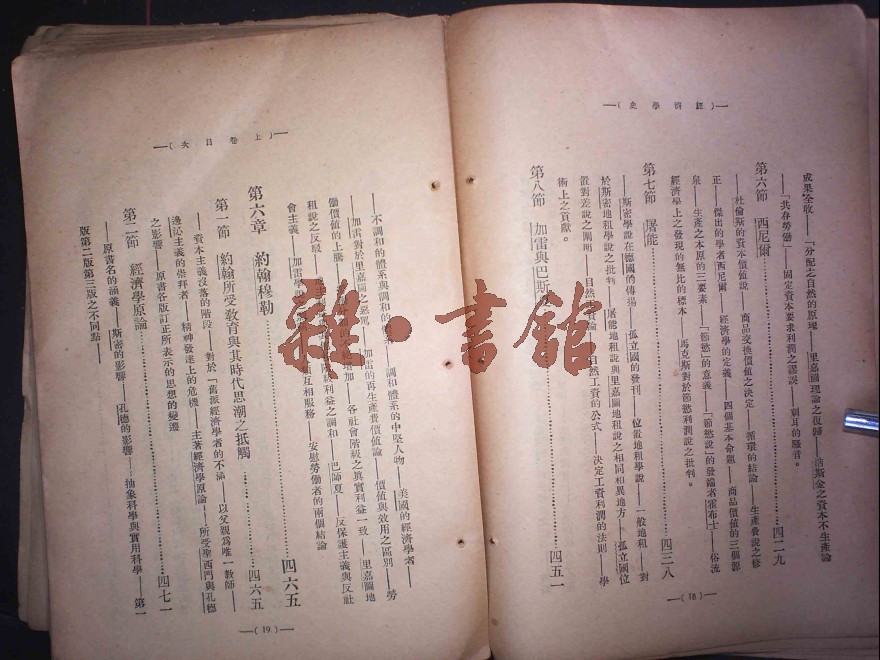 —(史學濟經)—
成果全收——「分配之自然的原理——里嘉圖理論之復歸——浩斯金之資本不生產論
——「共存勞働」——固定資本要求利潤之謬誤——刺耳的聲音。
第六節 西尼爾 四二九
——杜倫斯的資本價值說——商品交換價值之決定——循環的結論——生產費說之修
正——傑出的學者西尼爾——經濟學的定義——四個基本命題——商品價值的三個源
泉——生產之本原的三要素——「節慾」的意義——「節慾說」的發端者霍布士——俗流
經濟學上之發現的無比的標本——馬克斯對於節慾利潤說之批判。
第七節 屠能 四三八
——斯密學說在德國的傳播——孤立國的發刊——位置地租學說——一般地租——對
於斯密地租學說之批判——屠能地租說與里嘉圖地租說之相同相異地方——孤立國位
置對差說之闡明——自然工資論——自然工資的公式——決定工資利潤的法則——學
術上之貢獻。
第八節 加雷與巴斯 四五一
—(18)—
—(上卷目次)—
——不調和的體系與調和的體系——調和體系的中堅人物——美國的經濟學者——勞
——加雷對於里嘉圖之惡罵——加雷的再生產費價值論——價值與效用之區別——勞
働價值的上騰 增加——各社會階級之真實利益一致——里嘉圖地
租說之反駁 級利益之調和——巴師夏——反保護主義與反社
會主義——加雷學 互相服務——安慰勞働者的兩個結論
第六章 約翰穆勒 四六五
第一節 約翰所受教育與其時代思潮之抵觸 四六五
——資本主義沒落的階段——對於「舊派經濟學者的不滿——以父親為唯一教師——
邊沁主義的崇拜者——精神發達上的危機——主著經濟學原論——所受聖西門與孔德
之影響——原書各版訂正所表示的思想的變遷
第二節 經濟學原論 四七一
——原書名的涵義——斯密的影響——孔德的影響——抽象科學與實用科學——第一
版第二版第三版之不同點——
—(19)—
雜·書館